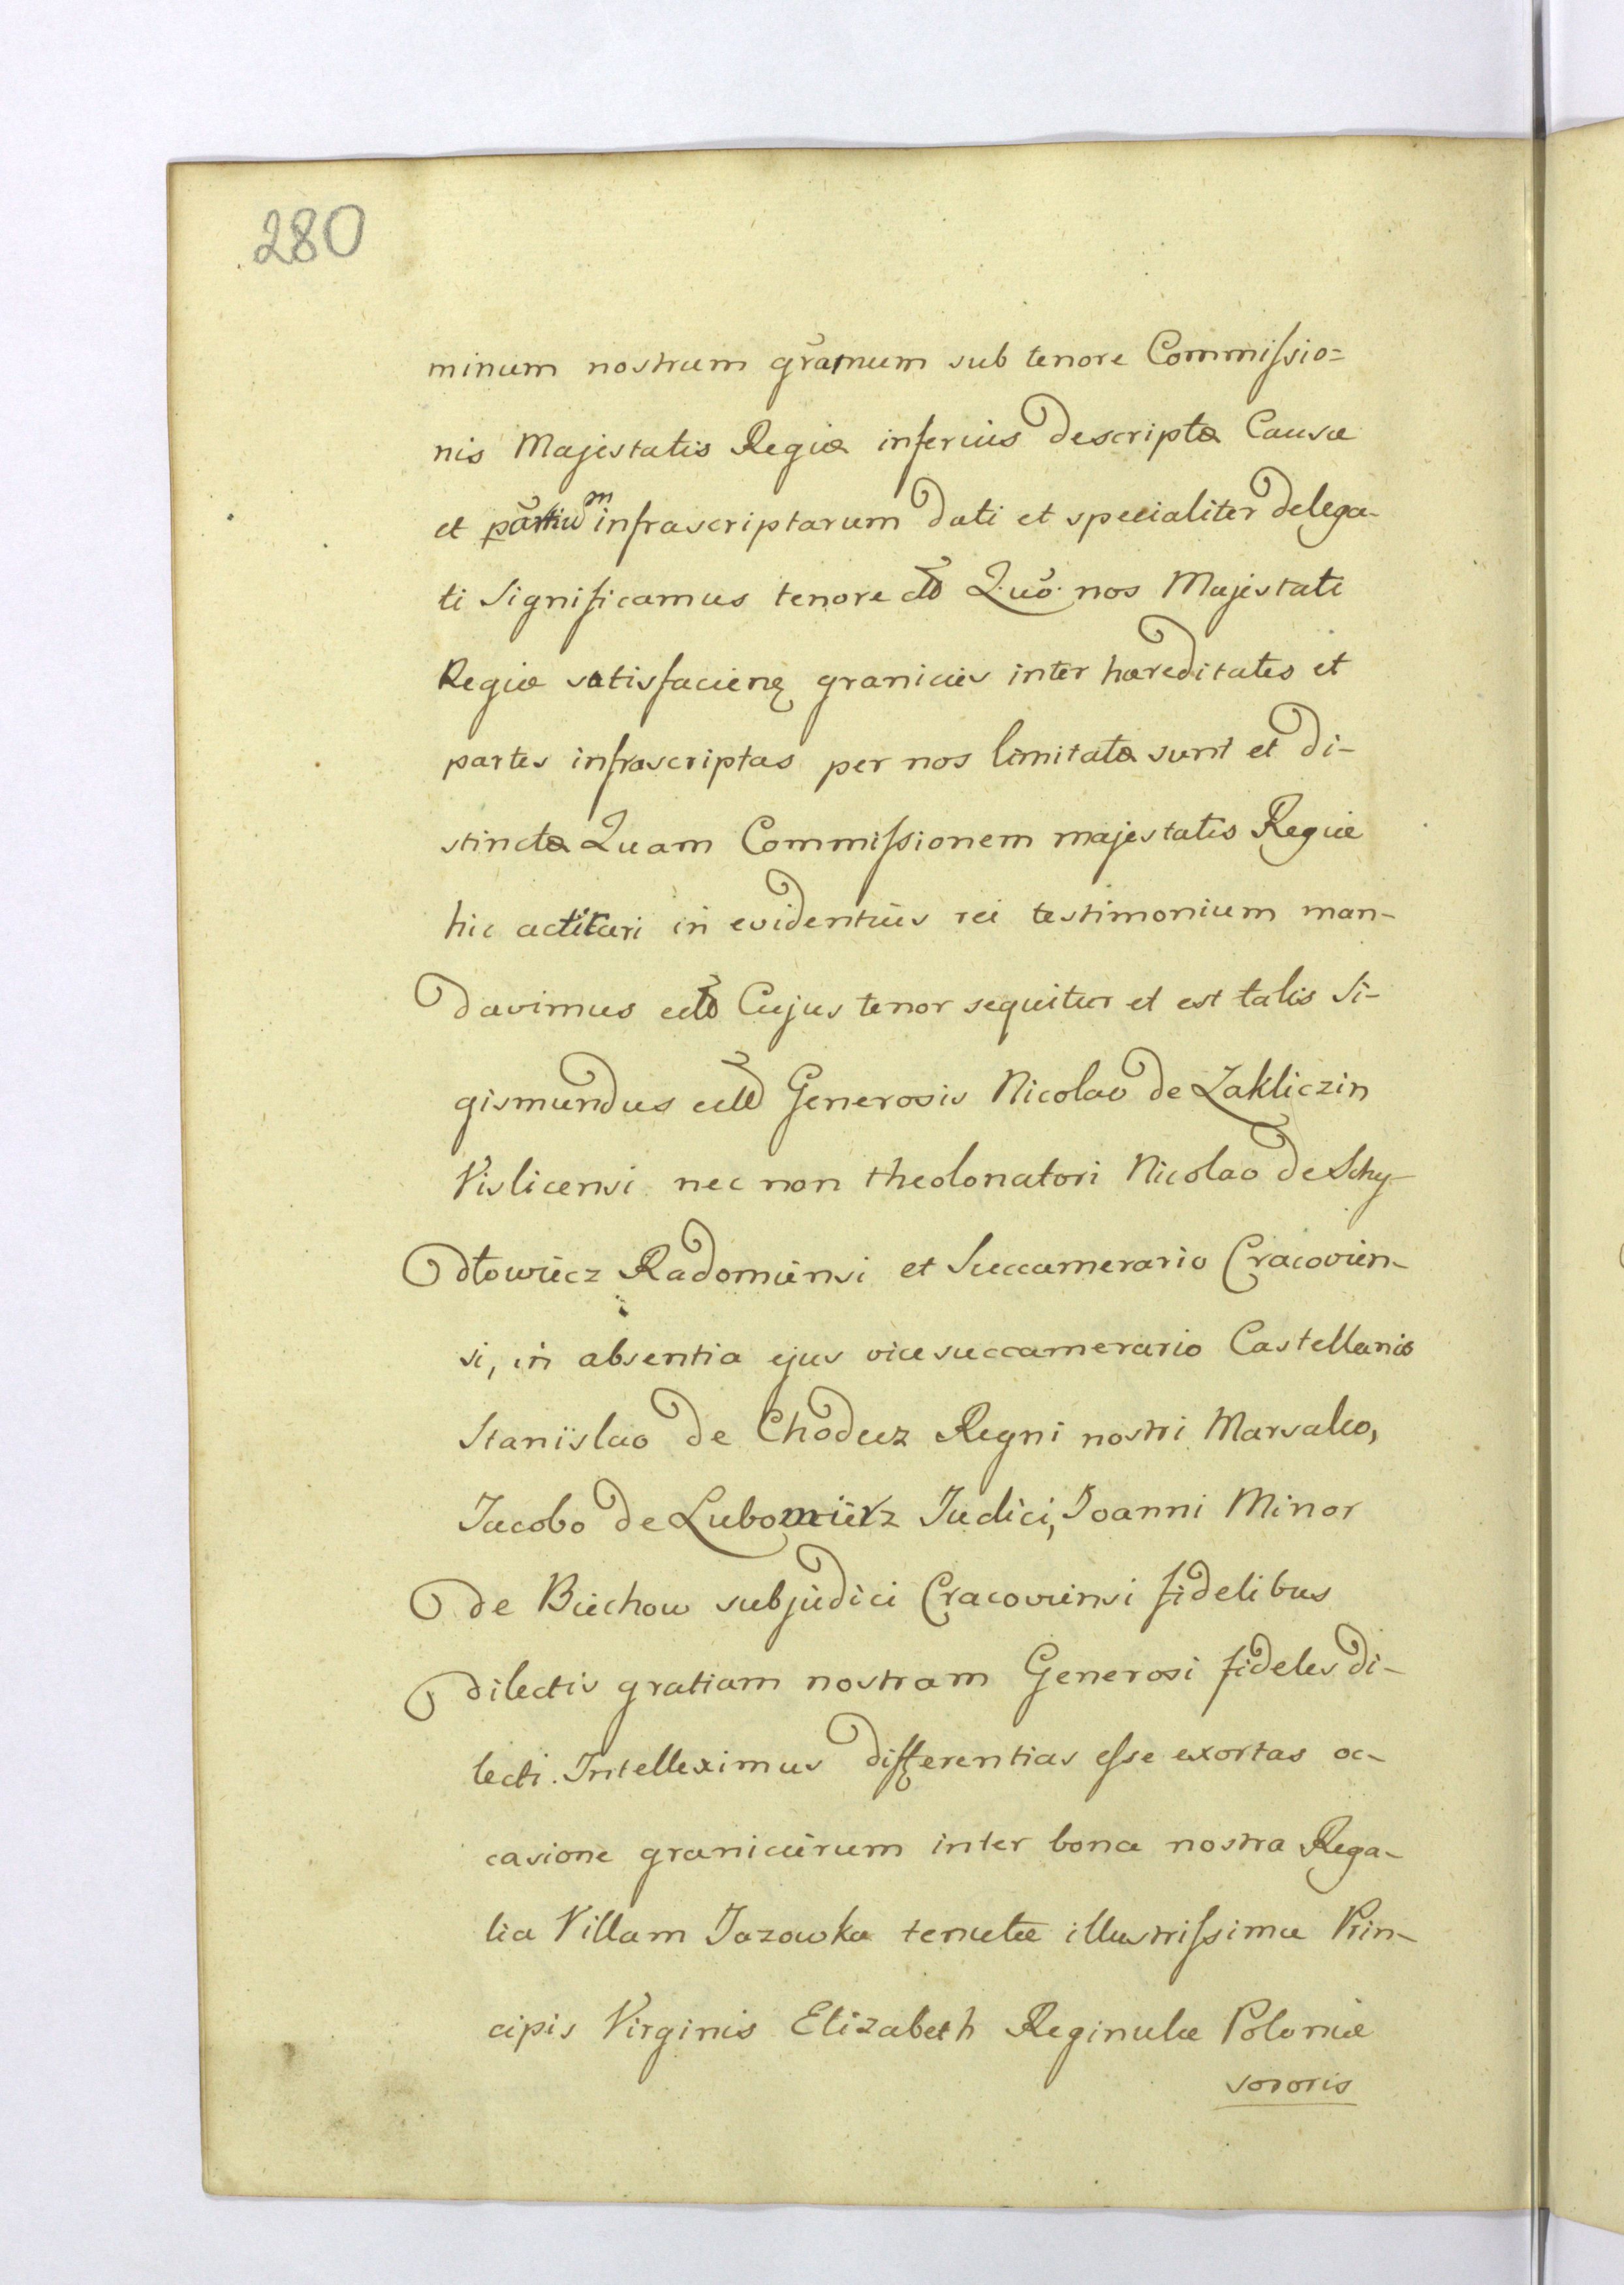 280
minum nostrum gra̅mum sub tenore Commiſsio=
nis Majestatis Regiæ inferius descriptæ Causæ
et partium infrascriptarum dati et specialiter delega-
ti significamus tenore Quo̅ nos Majestati
Regiæ satisfacien granicies inter hæreditates et
partes infrascriptas per nos limitatæ sunt et di-
stinctæ Quam Commiſsionem majestatis Regiæ
hic actitari in evidentius rei testimonium man-
davimus Cujus tenor sequitur et est talis Si-
gismundus Generosis Nicolao de Zakliczin
Vislicensi nec non theolonatori Nicolao de Schy-
dłowiecz Radomiensi et Succamerario Cracovien-
si, in absentia ejus vicesuccamerario Castellanis
Stanislao de Chodecz Regni nostri Marsalco,
Jacobo de Lubomierz Judici, Joanni Minor
de Biechow subjudici Cracoviensi fidelibus
dilectis gratiam nostram Generosi fideles di-
lecti. Intelleximus differentias eſse exortas oc-
casione granicierum inter bona nostra Rega-
lia Villam Jazowka tenutæ illustriſsimæ Prin-
cipis Virginis Elizabeth Reginulæ Poloniæ
sororis